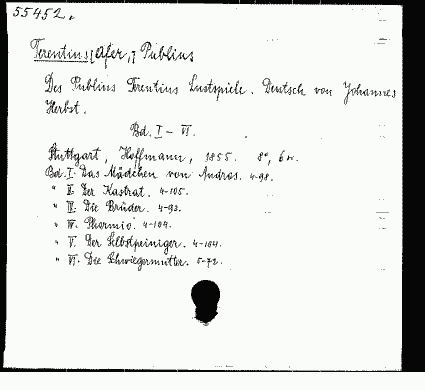 55452.
Terentius [Afer,] Publius
Des Publius Terentius Lustspiele. Deutsch von Johannes
Herbst.
Bd. I - VI.
Stuttgart, Hoffmann, 1855. 8°, 6 w.
Bd. I. Das Mädchen von Andros. 4-98.
" II. Der Kastrat. 4-105.
" III. Die Brüder. 4-93.
" IV. Phormio. 4-104.
" V. Der Selbstpeiniger. 4-104.
" VI. Die Schwiegermutter. 5-72.